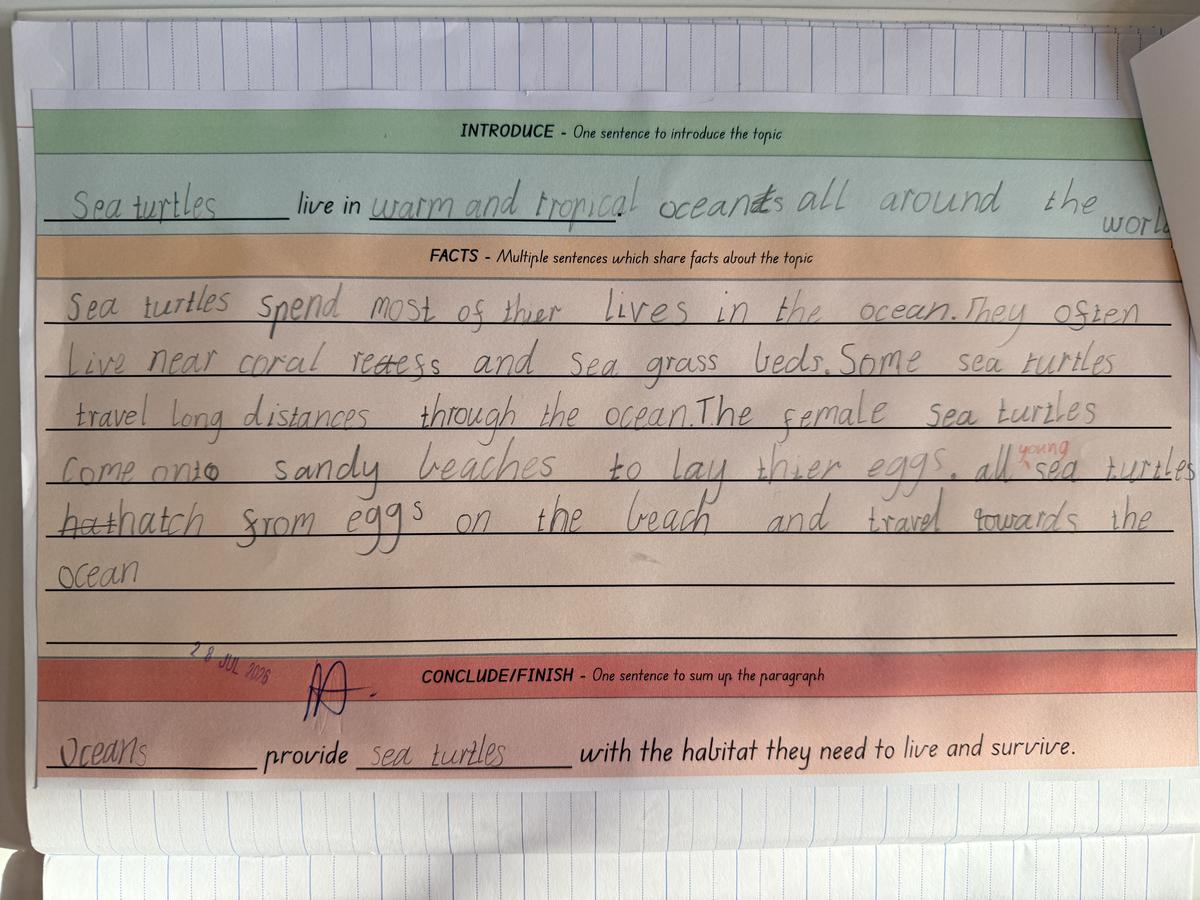 INTRODUCE - One sentence to introduce the topic
Sea turtles live in warm and tropical. oceans all around the
world
FACTS - Multiple sentences which share facts about the topic
Sea turtles spend most of thier lives in the ocean. They often
Live near coral reefs and sea grass beds. Some sea turtles
travel long distances through the ocean. The female sea turtles
Come onto sandy beaches to lay thier eggs. all young sea turtles
hat hatch from eggs on the beach and travel towards the
ocean
28 JUL 2026
CONCLUDE/FINISH - One sentence to sum up the paragraph
Oceans provide sea turtles with the habitat they need to live and survive.